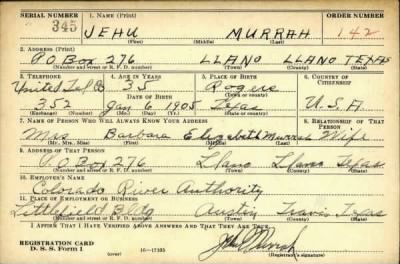 SERIAL NUMBER 1. NAME (Print) ORDER NUMBER
345 JEHU MURRAH 142
(First) (Middle) (Last)
2. ADDRESS (Print)
P.O. BOX 276 LLANO LLANO TEXAS
(Number and street or R. F. D. number) (Town) (County) (State)
3. TELEPHONE 4. AGE IN YEARS 5. PLACE OF BIRTH 6. COUNTRY OF CITIZENSHIP
United Tel B 35 Rogers
DATE OF BIRTH (Town or county)
352 Jan 6 1905 Texas U.S.A.
(Exchange) (Number) (Mo.) (Day) (Yr.) (State or country)
7. NAME OF PERSON WHO WILL ALWAYS KNOW YOUR ADDRESS 8. RELATIONSHIP OF THAT PERSON
Mrs Barbara Elizabeth Murrah Wife
(Mr., Mrs., Miss) (First) (Middle) (Last)
9. ADDRESS OF THAT PERSON
P.O Box 276 Llano Llano Texas
(Number and street or R. F. D. number) (Town) (County) (State)
10. EMPLOYER'S NAME
Colorado River Authority
11. PLACE OF EMPLOYMENT OR BUSINESS
Littlefield Bldg Austin Travis Texas
(Number and street or R. F. D. number) (Town) (County) (State)
I AFFIRM THAT I HAVE VERIFIED ABOVE ANSWERS AND THAT THEY ARE TRUE.
REGISTRATION CARD
D. S. S. Form 1 (over) 16—17105 (Registrant's signature)